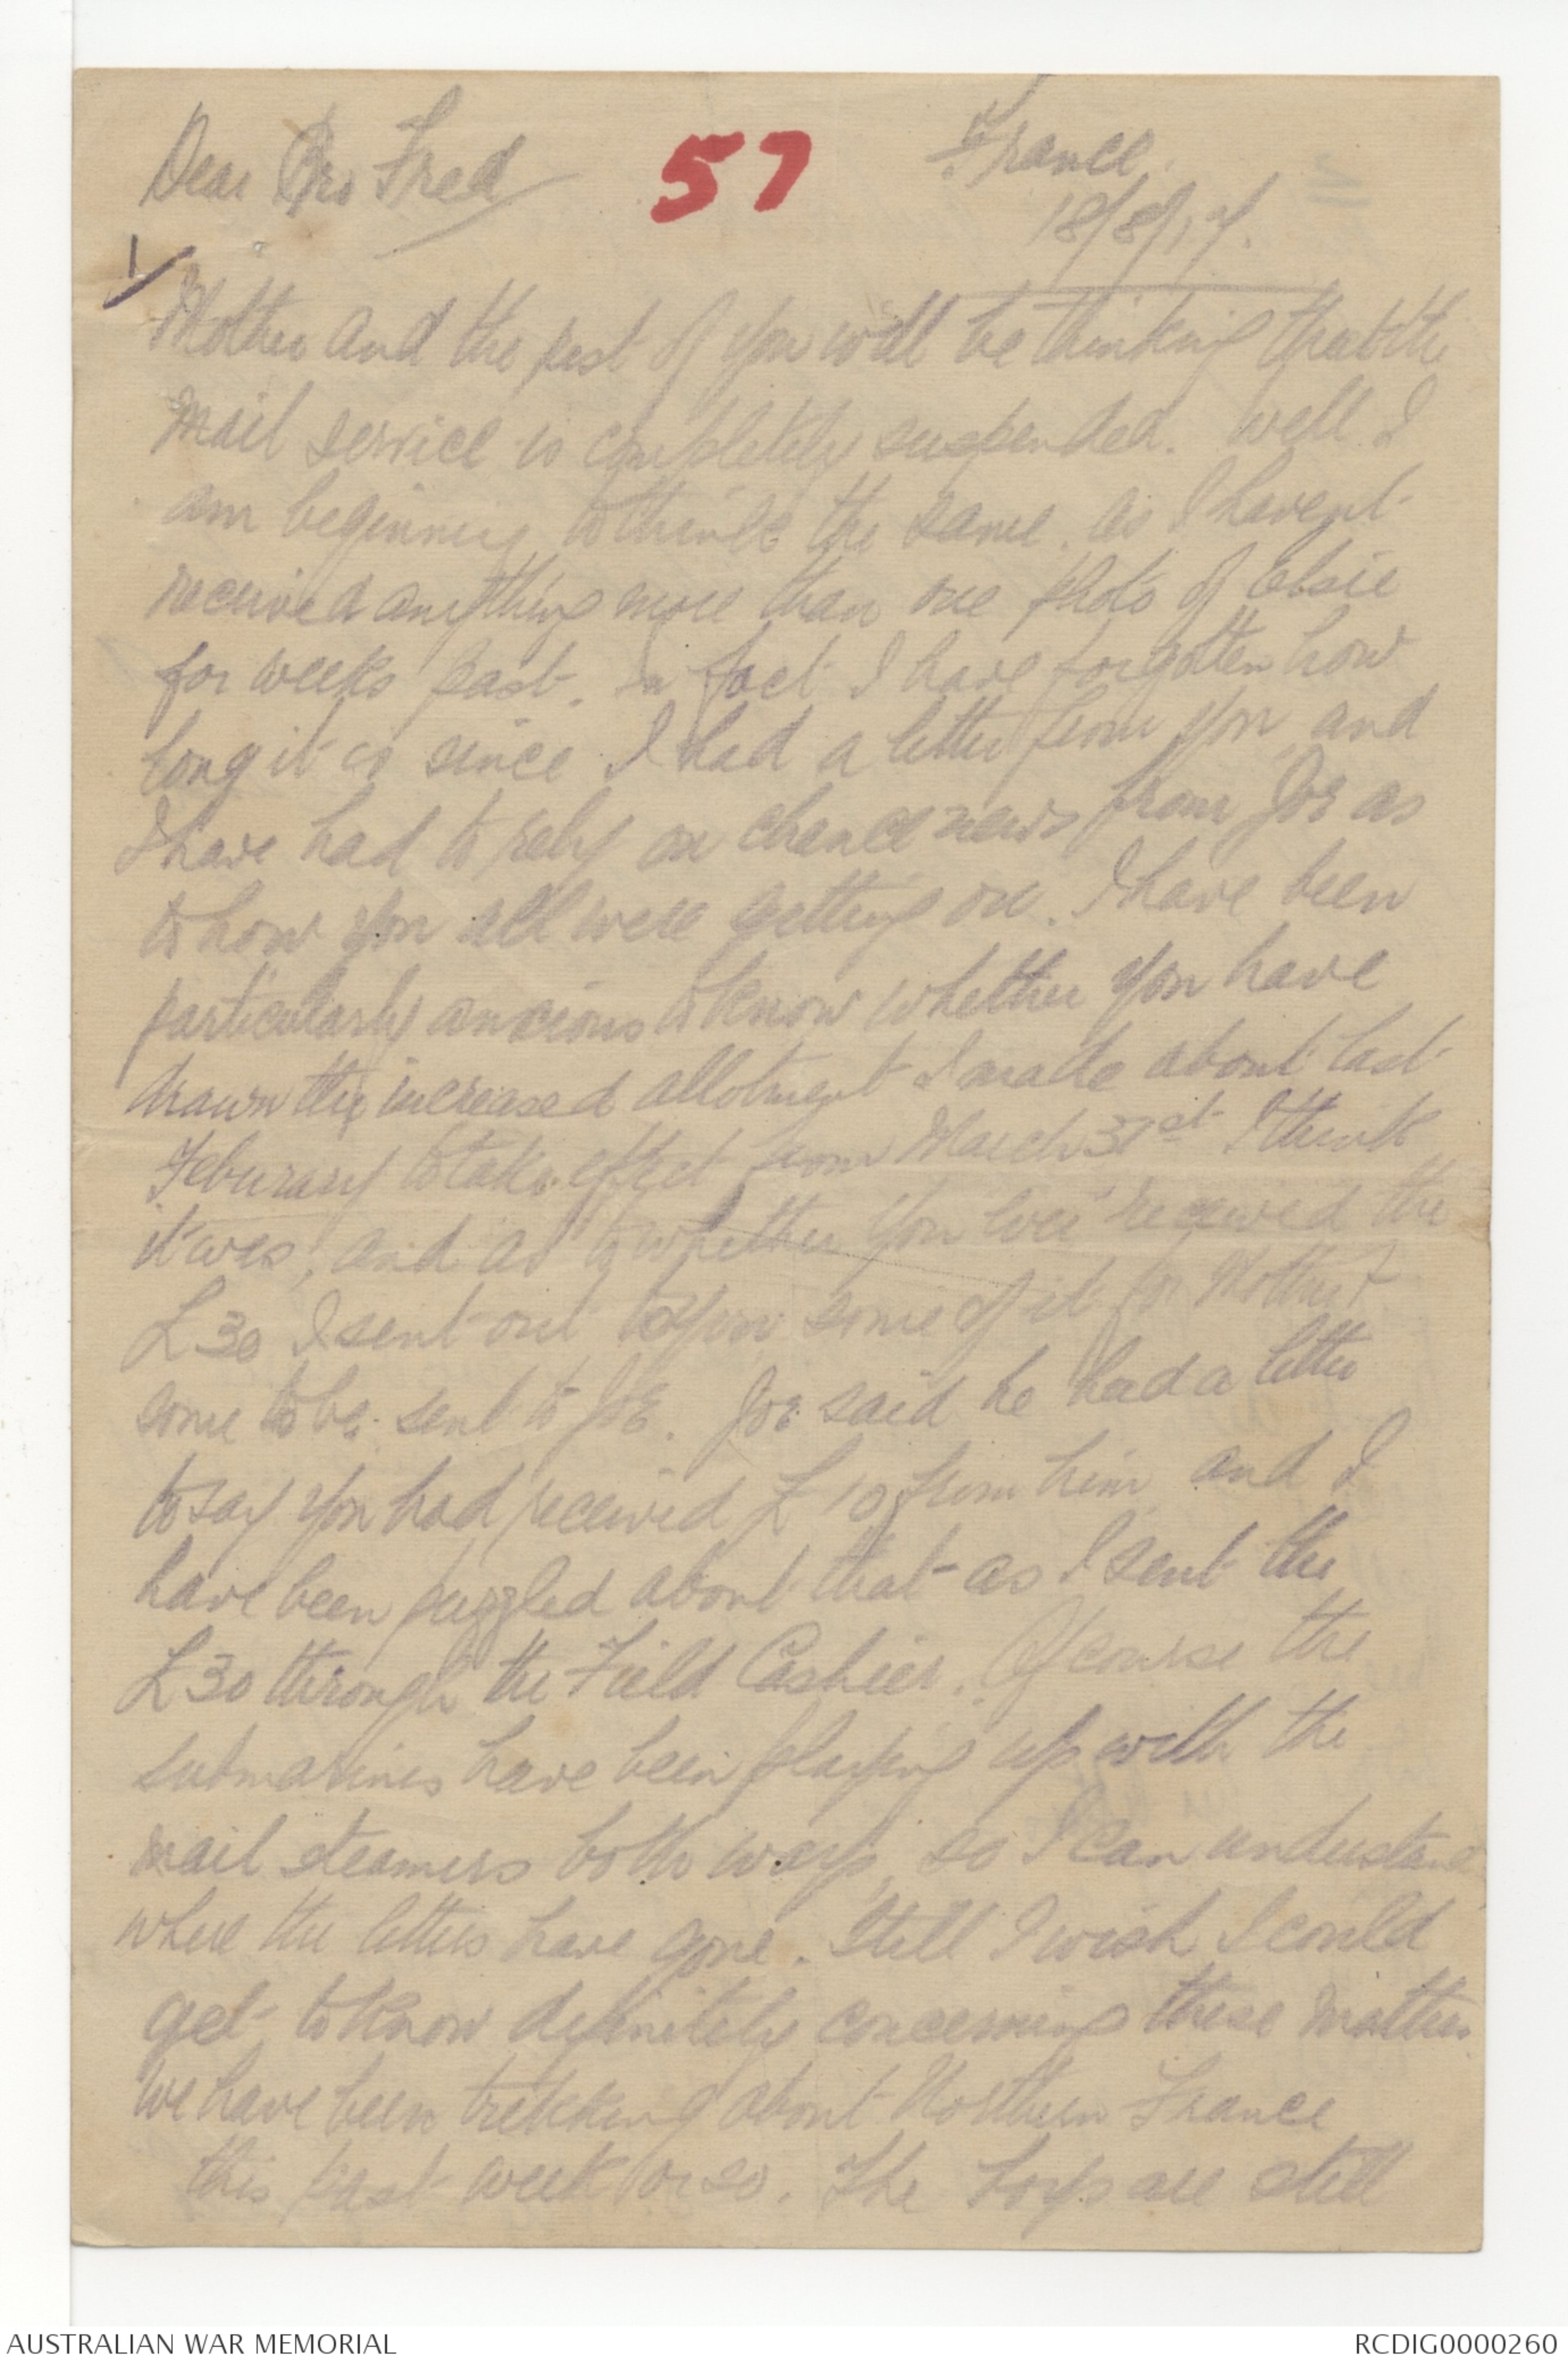 Dear Bro Fred
57
France.
18/8/17.
1/
Mother and the rest of you will be thinking that the
mail service is completely suspended. Well I
am beginning to think the same. as I havent
received anything more than one photo of Elsie
for weeks past. In fact I have forgotten how
long it is since I had a letter from you, and
I have had to rely on chance news from Joe as
to how you all were getting on. I have been
particularly anxious to know whether you have
drawn the increased allotment I made about last
Feburary to take effect from March 31st I think
it was, and as to whether you received the
£30 I sent out to you some of it for Mother &
some to be sent to Joe. Joe said he had a letter
to say you had received £10 from him and I
have been puzzled about that as I sent the
£30 through the Field Cashier. Of course the
submarines have been playing up with the
mail steamers both ways, so I can understand
where the letters have gone. Still I wish I could
get to know definitely concerning these matters.
We have been trekking about Northern France
this past week or so. The boys are still
AUSTRALIAN WAR MEMORIAL
RCDIG0000260